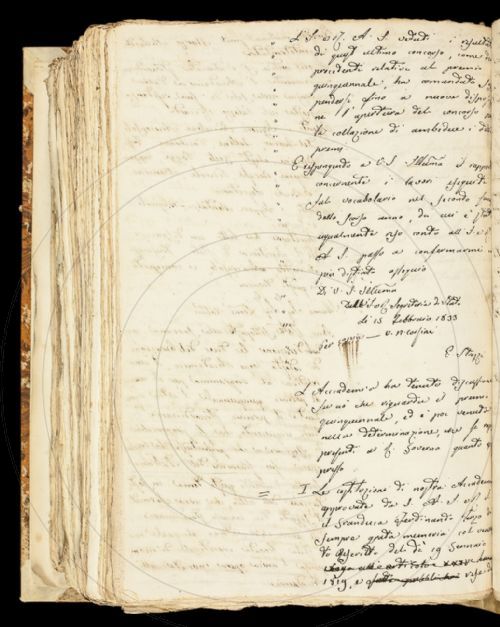 L'I. e R. A. S. veduti i resultati
di quest ultimo concorso come de
precedenti relativi al premio
quinquennale, ha comandato
pendersi fino a nuove dispo
ne l'apertura del concorso
la collazione di ambedue i
premj
E respingendo a V. S. Illma il rappor
concernente i lavori eseguiti
sul vocabolario nel secondo
dello scorso anno, di cui è stato
ugualmente reso conto all' I. e
A. S. passo a confermarmi
più distinto ossequio
D. V. S. Illma
Dall' I. e R. Segreteria di Stato
li 15 Febbraio 1833
per copia — V. N. Corsini
L'Accademia ha tenuto discussione
su ciò che riguardia il premio
quinquennale, ed è poi venuta
nella determinazione, che si
presenti a R. Governo quanto
presso
= I Le costituzioni di nostra Accademia
approvate da S. A. I. e R.
il Granduca Ferdinando Terzo di
sempre grata memoria col
to Rescritto del dì 19 Gennaio
1819, e